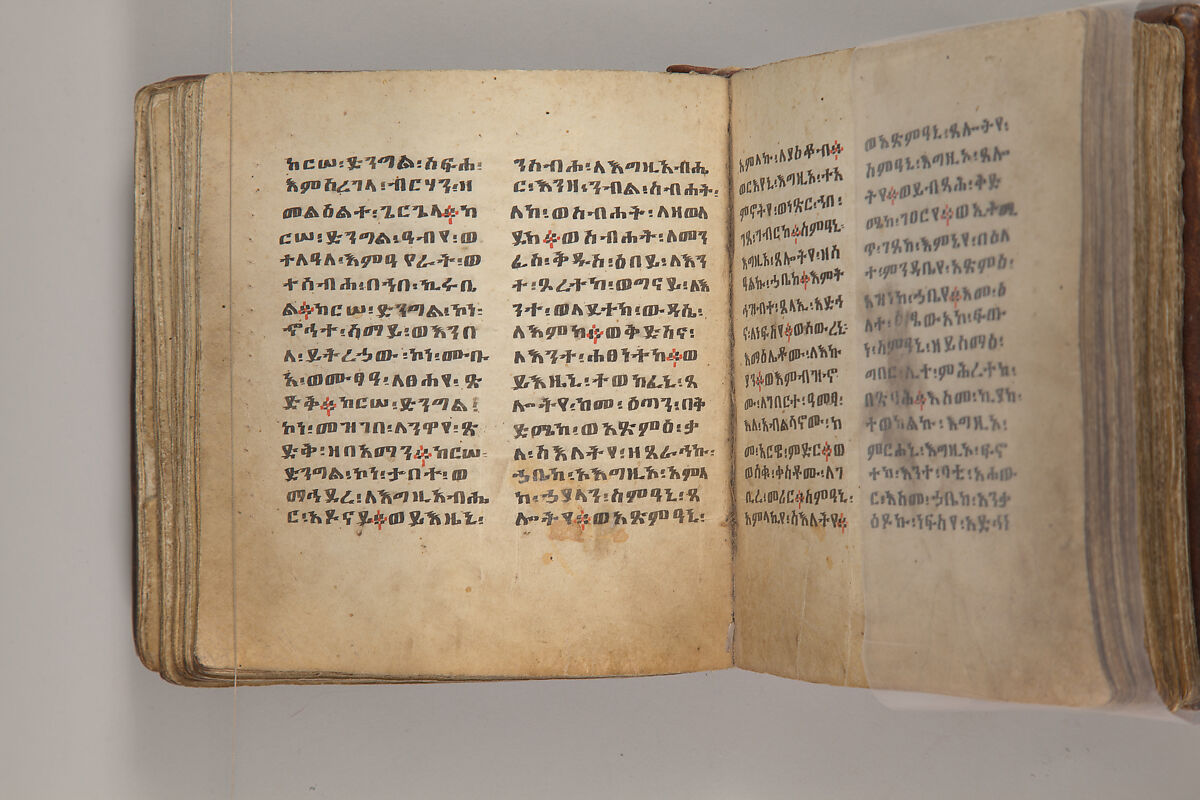 ከርሠ፡ድንግል፡ስፍሐ፡
እምሰረገላ፡ብርሃን፡ዘ
መልዕልተ፡ጌርጌላ፨ከ
ርሠ፡ድንግል፡ዓብየ፡ወ
ተለዓለ፡እምዓየራት፡ወ
ተሰብሐ፡በኀበ፡ኪሩቤ
ል፨ከርሠ፡ድንግል፡ኮነ፡
ኖኅተ፡ሰማይ፡ወእንበ
ለ፡ይትረኃው፡ኮነ፡ሙባ
አ፡ወሙፃዓ፡ለፀሐየ፡ጽ
ድቅ፨ከርሠ፡ድንግል፡
ኮነ፡መዝገበ፡ለንዋየ፡ጽ
ድቅ፡ዘበአማን፨ከርሠ፡
ድንግል፡ኮነ፡ታቦተ፡ወ
ማኅደረ፡ለእግዚአብሔ
ር፡አዶናይ፨ወይእዜኒ፡
ንሰብሖ፡ለእግዚአብሔ
ር፡እንዘ፡ንብል፡ስብሐት፡
ለከ፡ወስብሐት፡ለዘወለ
ይከ፨ወስብሐት፡ለመን
ፈስ፡ቅዱስ፡ዕበይ፡ለእን
ተ፡ጾረትከ፡ወግናይ፡ለእ
ንተ፡ወለደተከ፡ውዳሴ፡
ለእምከ፨ወቅድስና፡
ለእንተ፡ሐፀነትከ፨ወ
ይእዜኒ፡ተወከፈኒ፡ጸ
ሎትየ፡ከመ፡ዕጣን፡በቅ
ድሜከ፡ወአጽምዕ፡ቃ
ለ፡ስእለትየ፡ዘጸራኅኩ፡
ኀቤከ፡ኦእግዚአ፡አምላ
ከ፡ኃያላን፡ስምዓኒ፡ጸ
ሎትየ፨ወአጽምዓኒ፡
አምላኩ፡ለያዕቆብ፨
ወርእየኒ፡እግዚኦ፡ተአ
ምኖትየ፡ወነጽር፡ኀበ፡
ገጸ፡ገብርከ፨ስምዓኒ፡
እግዚኦ፡ጸሎትየ፡ዘስ
ዓልኩ፡ኀቤከ፨እምት
ጸላኢ፡አድኅ
ና፡ለነፍስየ፨ወሰውረኒ፡
እማዕሌቶሙ፡ለእኩ
ያን፨ወእምብዝኖ
ሙ፡ለገበርተ፡ዓመፃ፡
እለ፡አብልሳኖሙ፡ከ
መ፡አርዌ፡ምድር፨ወ
ወሰቁ፡ቀስቶሙ፡ለገ
ቢረ፡መሪር፨ስምዓኒ፡
አምላኪየ፡ስእለትየ፨
ወአጽምዓኒ፡ጸሎትየ፡
ስምዓኒ፡እግዚኦ፡ጸሎ
ትየ፨ወይብጻሕ፡ቅድ
ሜከ፡ገዐርየ፨ወኢትሚ
ጥ፡ገጸከ፡እምኔየ፡በዕለ
ተ፡ምንዳቤየ፡አጽምዕ፡
እዝነከ፡ኀቤየ፨እመ፡ዕ
ለተ፡እጼውአከ፡ፍጡ
ነ፡ስምዓኒ፡ዘይሰማዕ፡
ግበር፡ሊተ፡ምሕረተከ፡
በጽባሕ፨እስመ፡ኪያከ፡
ተወከልኩ፡እግዚኦ፡
ምርሐኒ፡እግዚኦ፡ፍኖ
ተከ፡እንተ፡ባቲ፡አሐው
ር፡እስመ፡ኀቤከ፡አንቃ
ዕዶኩ፡ነፍስየ፡አድኅነ